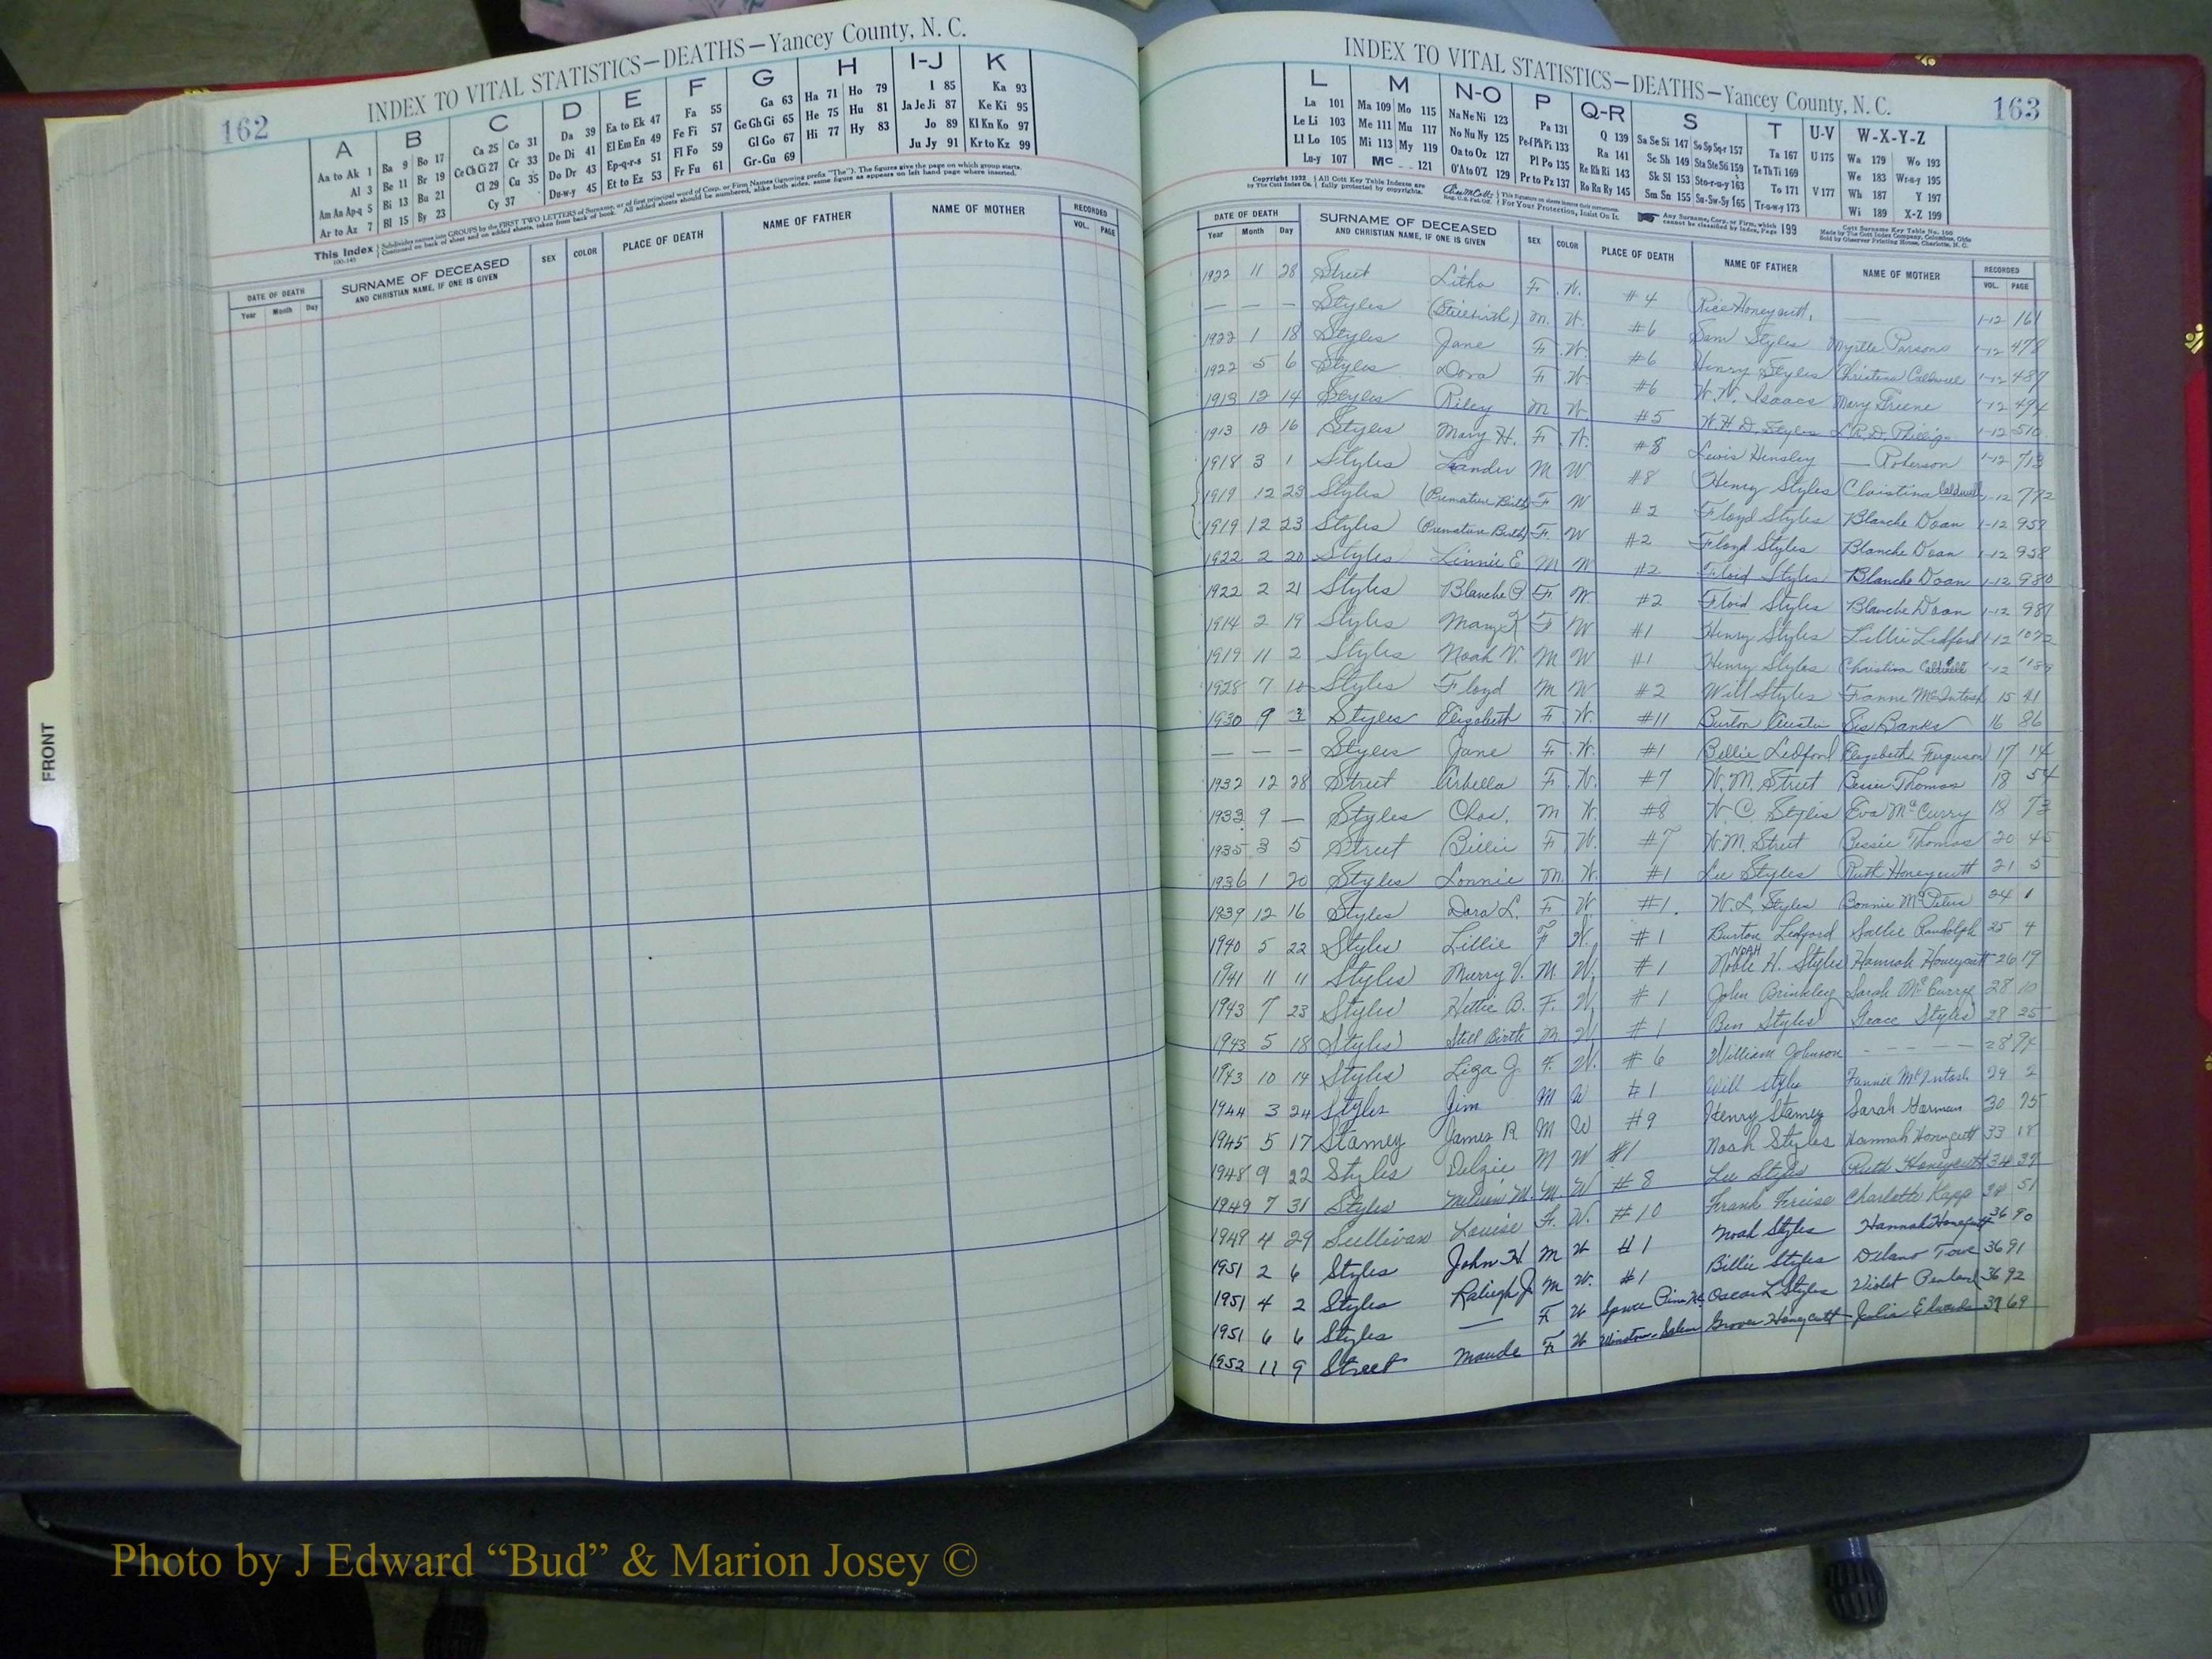 INDEX TO VITAL STATISTICS—DEATHS—Yancey County, N. C.
162
A B C D E F G H I-J K
Aa to Ak 1 Ba 9 Bo 17 Ca 25 Co 31 Da 39 Ea to Ek 47 Fa 55 Ga 63 Ha 71 Ho 79 I 85 Ka 93
Al 3 Be 11 Br 19 Ce Ch Ci 27 Cr 33 De Di 41 El Em En 49 Fe Fi 57 Ge Gh Gi 65 He 75 Hu 81 Ja Je Ji 87 Ke Ki 95
Am An Ap-q 5 Bi 13 Bu 21 Cl 29 Cu 35 Do Dr 43 Ep-q-r-s 51 Fl Fo 59 Gl Go 67 Hi 77 Hy 83 Jo 89 Kl Kn Ko 97
Ar to Az 7 Bl 15 By 23 Cy 37 Du-w-y 45 Et to Ez 53 Fr Fu 61 Gr-Gu 69 Ju Jy 91 Kr to Kz 99
This Index Subdivides names into GROUPS by the FIRST TWO LETTERS of Surname, or of first principal word of Corp. or Firm Names (ignoring prefix "The"). The figures give the page on which group starts.
Continued on back of sheet and on added sheets, taken from back of book. All added sheets should be numbered, alike both sides, same figure as appears on left hand page where inserted.
DATE OF DEATH SURNAME OF DECEASED SEX COLOR PLACE OF DEATH NAME OF FATHER NAME OF MOTHER RECORDED
Year Month Day AND CHRISTIAN NAME, IF ONE IS GIVEN VOL. PAGE
FRONT
INDEX TO VITAL STATISTICS—DEATHS—Yancey County, N. C.
163
L M N-O P Q-R S T U-V W-X-Y-Z
La 101 Ma 109 Mo 115 Na Ne Ni 123 Pa 131 Q 139 Sa Se Si 147 So Sp Sq-r 157 Ta 167 U 175 Wa 179 Wo 193
Le Li 103 Me 111 Mu 117 No Nu Ny 125 Pe-f Ph Pi 133 Ra 141 Sc Sh 149 Sta Ste Sti 159 Te Th Ti 169 We 183 Wr-u-y 195
Ll Lo 105 Mi 113 My 119 Oa to Oz 127 Pl Po 135 Re Rh Ri 143 Sk Sl 153 Sto-r-u-y 163 To 171 V 177 Wh 187 Y 197
Lu-y 107 Mc 121 O'A to O'Z 129 Pr to Pz 137 Ro Ru Ry 145 Sm Sn 155 Su-Sw-Sy 165 Tr-u-w-y 173 Wi 189 X-Z 199
Copyright 1922 All Cott Key Table Indexes are
by The Cott Index Co. fully protected by copyrights.
For Your Protection, Insist On It.
Any Surname, Corp. or Firm, which
cannot be classified by Index, Page 199
Cott Surname Key Table No. 100
Made by The Cott Index Company, Columbus, Ohio
Sold by Observer Printing House, Charlotte, N. C.
DATE OF DEATH SURNAME OF DECEASED SEX COLOR PLACE OF DEATH NAME OF FATHER NAME OF MOTHER RECORDED
Year Month Day AND CHRISTIAN NAME, IF ONE IS GIVEN VOL. PAGE
1922 11 28 Street Litha F. W. #4 Rice Honeycutt, — 1-12 161
— — — Styles (Stillbirth) M. W. #6 Sam Styles Myrtle Parsons 1-12 478
1922 1 18 Styles Jane F. W. #6 Henry Styles Christina Caldwell 1-12 487
1922 5 6 Styles Dora F. W. #6 W. W. Isaacs Mary Greene 1-12 494
1913 12 14 Styles Riley M W. #5 W. H. D. Styles L. R. D. 1-12 510
1913 10 16 Styles Mary H. F. W. #8 Lewis Hensley — Roberson 1-12 713
1918 3 1 Styles Leander M W #8 Henry Styles Christina Caldwell 1-12 772
1919 12 23 Styles (Premature Birth) F W #2 Floyd Styles Blanche Doan 1-12 958
1919 12 23 Styles (Premature Birth) F. W #2 Floyd Styles Blanche Doan 1-12 958
1922 2 20 Styles Linnie E M W #2 Floid Styles Blanche Doan 1-12 980
1922 2 21 Styles Blanche F. W. #2 Floid Styles Blanche Doan 1-12 981
1914 2 19 Styles Mary K F W #1 Henry Styles Lillie Ledford 1-12 1072
1919 11 2 Styles Noah V. M W #1 Henry Styles Christina Caldwell 1-12
1928 7 10 Styles Floyd M W #2 Will Styles Fannie McIntosh 15 41
1930 9 3 Styles Elizabeth F. W. #11 Burton Austin Sis Banks 16 86
— — — Styles Jane F. W. #1 Billie Ledford Elizabeth Ferguson 17 14
1932 12 28 Street Arbella F. W. #7 W. M. Street Thomas 18 54
1933 9 — Styles Chas. M W. #8 W. C. Styles Eva McCurry 18 73
1935 3 5 Street Billie F W. #7 W. M. Street Bessie Thomas 20 45
1936 1 20 Styles Lonnie M. W. #1 Lee Styles Ruth Honeycutt 21 5
1939 12 16 Styles Dora L. F. W #1. W. L. Styles Bonnie McPeters 24 1
1940 5 22 Styles Lillie F W. #1 Burton Ledford Sallie Randolph 25 4
1941 11 11 Styles Murry V. M. W. #1 NOAH Noble H. Styles Hannah Honeycutt 26 19
1943 7 23 Styles Hettie B. F. W. #1 John Brinkley Sarah McCurry 28 10
1943 5 18 Styles Still Birth M W. #1 Ben Styles Grace Styles 28 25
1943 10 14 Styles Liza J. F. W. #6 William Johnson - - - - 28 94
1944 3 24 Styles Jim M W #1 Will Styles Fannie McIntosh 29 2
1945 5 17 Stamey James R M W #9 Henry Stamey Sarah Harman 30 75
1948 9 22 Styles Delzie M W #1 Noah Styles Hannah Honeycutt 33 18
1949 7 31 Styles M. M. W #8 Lee Styles Ruth Honeycutt 34 39
1949 4 29 Sullivan Louise F. W. #10 Frank Charlotte Kapp 34 51
1951 2 6 Styles John H. M W #1 Noah Styles Hannah Honeycutt 36 90
1951 4 2 Styles Raliegh J. M W. #1 Billie Styles Towe 36 91
1951 6 6 Styles — F. W Spruce Pine NC. Oscar L Styles Violet Penland 36 92
1952 11 9 Street Maude F. W Winston-Salem Grover Honeycutt Julia Edwards 37 69
Photo by J Edward “Bud” & Marion Josey ©